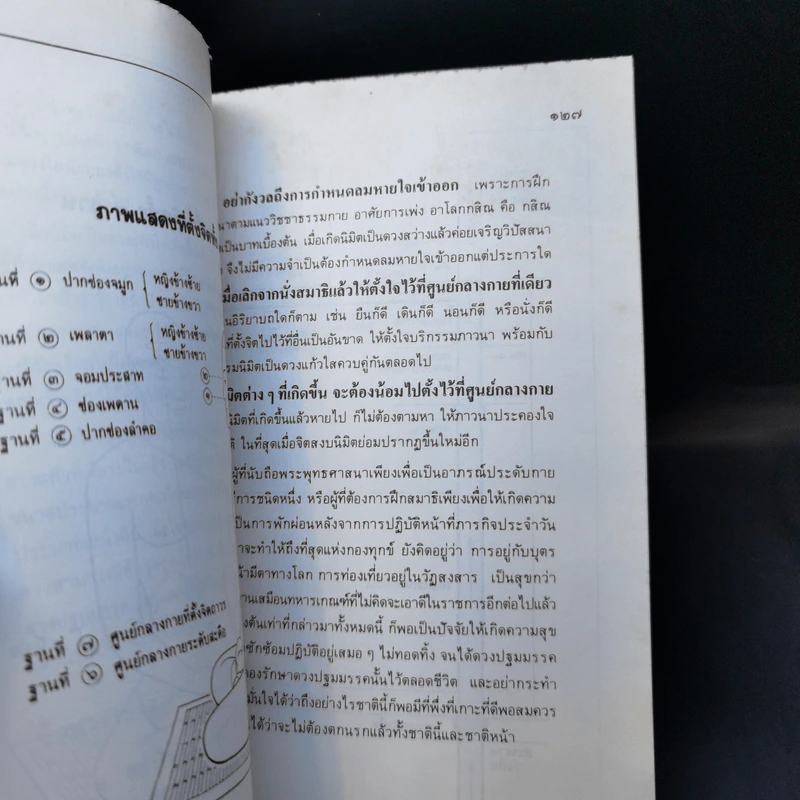 ภาพแสดงที่ตั้งจิต
นที่ ๑ ปากช่องจมูก { หญิงข้างซ้าย
ชายข้างขวา
านที่ ๒ เพลาตา { หญิงข้างซ้าย
ชายข้างขวา
ฐานที่ ๓ จอมประสาท
ฐานที่ ๔ ช่องเพดาน
ฐานที่ ๕ ปากช่องลำคอ
ฐานที่ ๗ ศูนย์กลางกายที่ตั้งจิตถาวร
ฐานที่ ๖ ศูนย์กลางกายระดับสะดือ
๑๒๗
อย่ากังวลถึงการกำหนดลมหายใจเข้าออก เพราะการฝึก
นาตามแนววิชชาธรรมกาย อาศัยการเพ่ง อาโลกกสิณ คือ กสิณ
เป็นบาทเบื้องต้น เมื่อเกิดนิมิตเป็นดวงสว่างแล้วค่อยเจริญวิปัสสนา
จึงไม่มีความจำเป็นต้องกำหนดลมหายใจเข้าออกแต่ประการใด
มื่อเลิกจากนั่งสมาธิแล้วให้ตั้งใจไว้ที่ศูนย์กลางกายที่เดียว
นอิริยาบถใดก็ตาม เช่น ยืนก็ดี เดินก็ดี นอนก็ดี หรือนั่งก็ดี
ที่ตั้งจิตไปไว้ที่อื่นเป็นอันขาด ให้ตั้งใจบริกรรมภาวนา พร้อมกับ
รมนิมิตเป็นดวงแก้วใสควบคู่กันตลอดไป
มิตต่าง ๆ ที่เกิดขึ้น จะต้องน้อมไปตั้งไว้ที่ศูนย์กลางกาย
นิมิตที่เกิดขึ้นแล้วหายไป ก็ไม่ต้องตามหา ให้ภาวนาประคองใจ
ติ ในที่สุดเมื่อจิตสงบนิมิตย่อมปรากฏขึ้นใหม่อีก
ผู้ที่นับถือพระพุทธศาสนาเพียงเพื่อเป็นอาภรณ์ประดับกาย
ร์การชนิดหนึ่ง หรือผู้ที่ต้องการฝึกสมาธิเพียงเพื่อให้เกิดความ
เป็นการพักผ่อนหลังจากการปฏิบัติหน้าที่ภารกิจประจำวัน
าจะทำให้ถึงที่สุดแห่งกองทุกข์ ยังคิดอยู่ว่า การอยู่กับบุตร
น้ามีตาทางโลก การท่องเที่ยวอยู่ในวัฏสงสาร เป็นสุขกว่า
านเสมือนทหารเกณฑ์ที่ไม่คิดจะเอาดีในราชการอีกต่อไปแล้ว
องต้นเท่าที่กล่าวมาทั้งหมดนี้ ก็พอเป็นปัจจัยให้เกิดความสุข
ซักซ้อมปฏิบัติอยู่เสมอ ๆ ไม่ทอดทิ้ง จนได้ดวงปฐมมรรค
องรักษาดวงปฐมมรรคนั้นไว้ตลอดชีวิต และอย่ากระทำ
มั่นใจได้ว่าถึงอย่างไรชาตินี้ก็พอมีที่พึ่งที่เกาะที่ดีพอสมควร
ได้ว่าจะไม่ต้องตกนรกแล้วทั้งชาตินี้และชาติหน้า